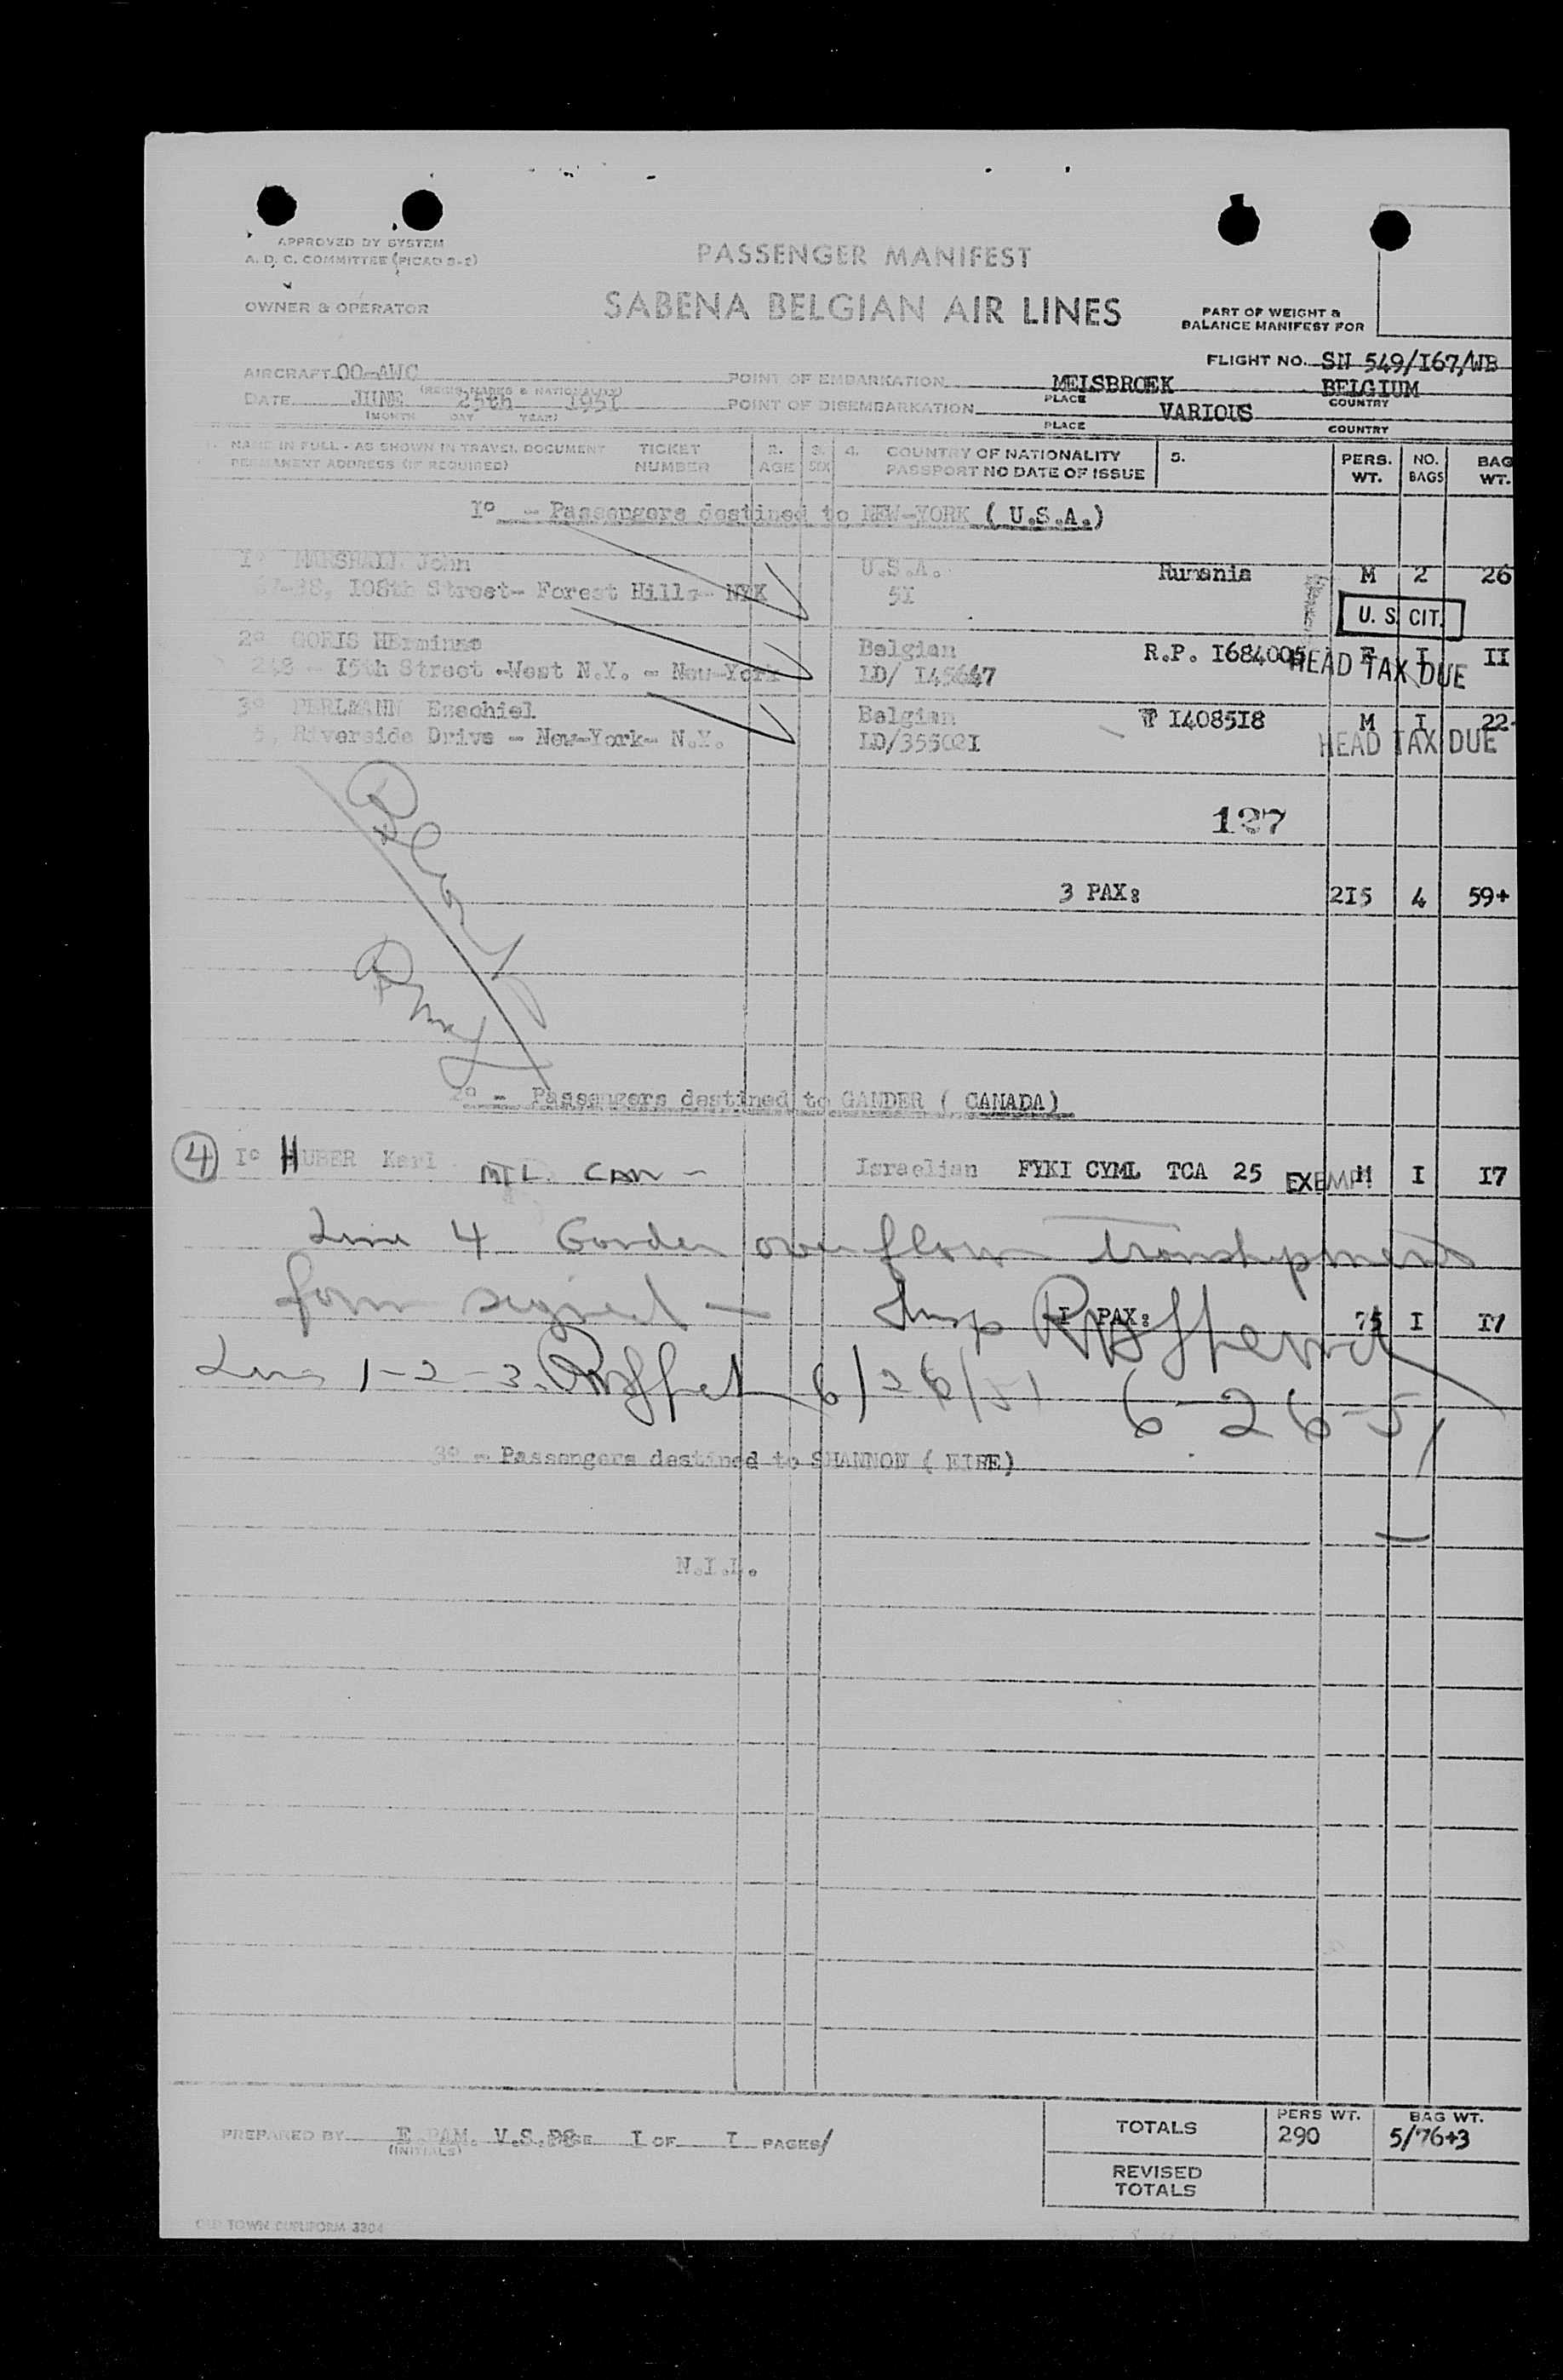 APPROVED BY SYSTEM
A. D. C. COMMITTEE (PICAO S-2)
PASSENGER MANIFEST
OWNER & OPERATOR
SABENA BELGIAN AIR LINES
PART OF WEIGHT &
BALANCE MANIFEST FOR
FLIGHT NO. SN 549/I67/WB
AIRCRAFT OO-AWC POINT OF EMBARKATION MELSBROEK BELGIUM
(REGIS. MARKS & NATIONALITY) PLACE COUNTRY
DATE JUNE 25th 1951 POINT OF DISEMBARKATION VARIOUS
(MONTH DAY YEAR) PLACE COUNTRY
NAME IN FULL - AS SHOWN IN TRAVEL DOCUMENT TICKET 2. 3. 4. COUNTRY OF NATIONALITY 5. PERS. NO. BAG
PERMANENT ADDRESS (IF REQUIRED) NUMBER AGE SEX PASSPORT NO DATE OF ISSUE WT. BAGS WT.
I° - Passengers destined to NEW-YORK ( U.S.A.)
I° MARSHALL John U.S.A. Rumania M 2 26
108th Street- Forest Hills- NYK 5I
U. S. CIT.
2° GORIS HErminne Belgian R.P. I684005 F I II
248 - I5th Street -West N.Y. - New-York LD/ I45647
HEAD TAX DUE
3° PERLMANN Ezechiel Belgian I4085I8 M I 22
5, Riverside Drive - New-York- N.Y. LD/35502I
HEAD TAX DUE
127
3 PAX: 2I5 4 59+
2° - Passengers destined to GANDER ( CANADA)
4 I° HUBER Karl MTL. CAN - Israelian FYKI CYML TCA 25 EXEMPT M I I7
Line 4 Gander overflown Transhipment
form signed - Insp
I PAX: 75 I I7
Lines 1-2-3. 6/26/51
6-26-51
3° - Passengers destined to SHANNON ( EIRE)
N.I.L.
PREPARED BY E.PAM. V.S. PAGE I OF I PAGES/
(INITIALS)
TOTALS PERS WT. 290 BAG WT. 5/76+3
REVISED
TOTALS
OLD TOWN DUPLIFORM 3304